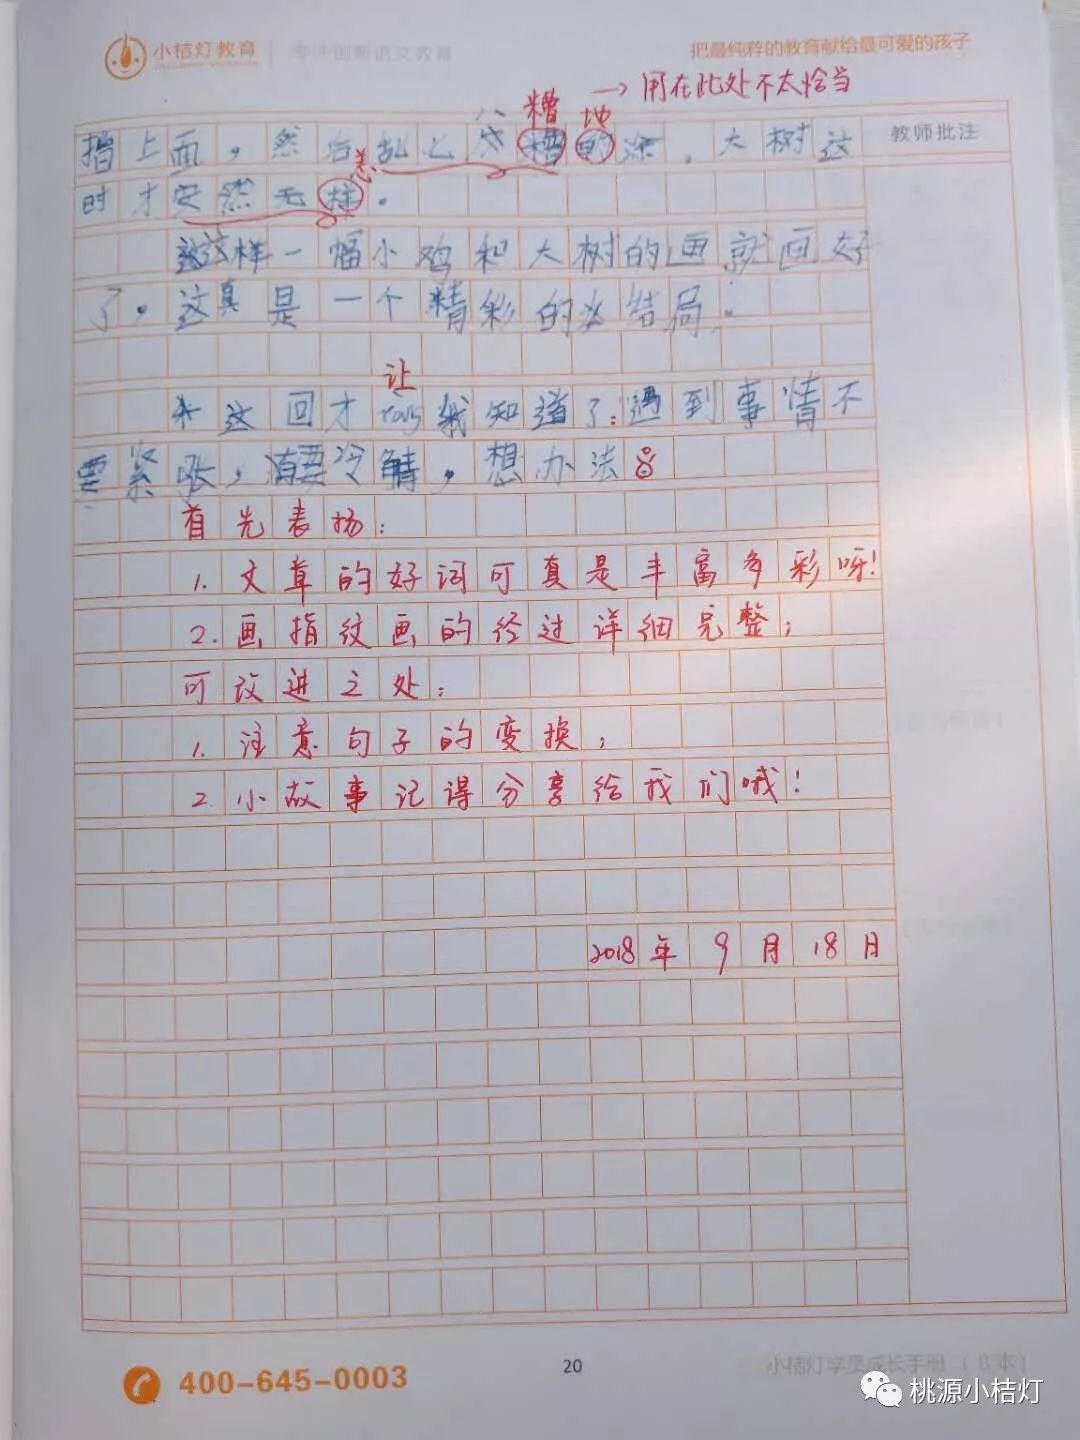 小桔灯教育 专注创新语文教育 把最纯粹的教育献给最可爱的孩子
糟 地 → 用在此处不太恰当
教师批注
指上面，然后乱七八糟的涂，大树这
恙
时才安然无
这样一幅小鸡和大树的画就画好
了，这真是一个精彩的结局。
让
这回才rang我知道了：遇到事情不
要紧张，要冷静，想办法。
首先表扬：
1. 文章的好词可真是丰富多彩呀！
2. 画指纹画的经过详细完整；
可改进之处：
1. 注意句子的变换；
2. 小故事记得分享给我们哦！
2018年9月18日
400-645-0003
20
小桔灯学员成长手册（B本）
桃源小桔灯